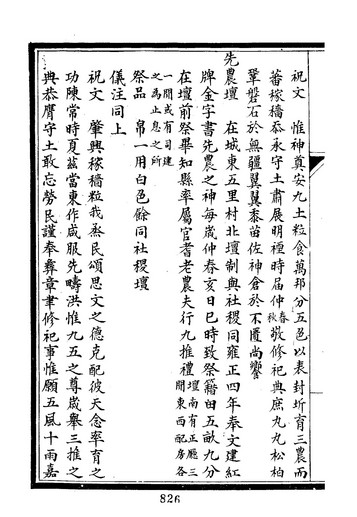 祝文　惟神奠安九土粒食萬邦分五色以表封圻育三農而
蕃稼穡恭承守土肅展明禋時屆仲春秋敬修祀典庶九九松柏
鞏磐石於無疆翼翼黍苗佐神倉於不匱尚饗
先農壇　在城東五里村北壇制與社稷同雍正四年奉文建紅
牌金字書先農之神每歲仲春亥日巳時致祭籍田五畝九分
在壇前祭畢知縣率屬官耆老農夫行九推禮壇南有正廳三間東西配房各
一間或有司建之為止息之所
祭品　帛一用白色餘同社稷壇
儀注同上
祝文　肇興稼穡粒我烝民頌思文之德克配彼天念率育之
功陳常時夏茲當東作咸服先疇洪惟九五之尊歲舉三推之
典恭膺守土敢忘勞民謹奉彝章聿修祀事惟願五風十雨嘉
826